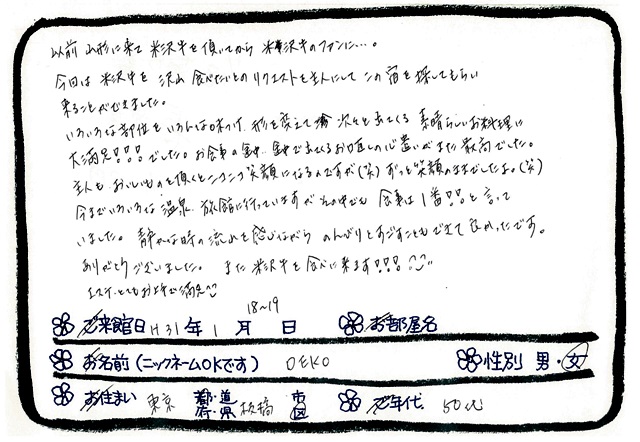 以前 山形に来て 米沢牛を頂いてから 米沢牛のファンに…。
今回は 米沢牛を 沢山 食べたいとのリクエストを主人にして この宿を探してもらい
来ることができました。
いろいろな部位を いろんな味つけ、形を変えて 次々と出てくる 素晴らしいお料理に
大満足!!!でした。お食事の 出てくるお皿の心遣いがまた最高でした。
主人も おいしいものを頂くとニコニコ笑顔になるのですが(笑) ずっと笑顔のままでしたよ。(笑)
今までいろいろな 温泉 旅館に行っていますが その中でも 食事は1番!!と言って
いました。 静かな時の流れを感じながら のんびりとすごすこともできて良かったです。
ありがとうございました。 また 米沢牛を食べに来ます!!!
エステ、とてもお上手で満足
ご来館日 H31年 1月 18~19日 お部屋名
お名前(ニックネームOKです) OEKO 性別 男・女
お住まい 東京 都・道 府・県 板橋 市 区 ご年代 50代